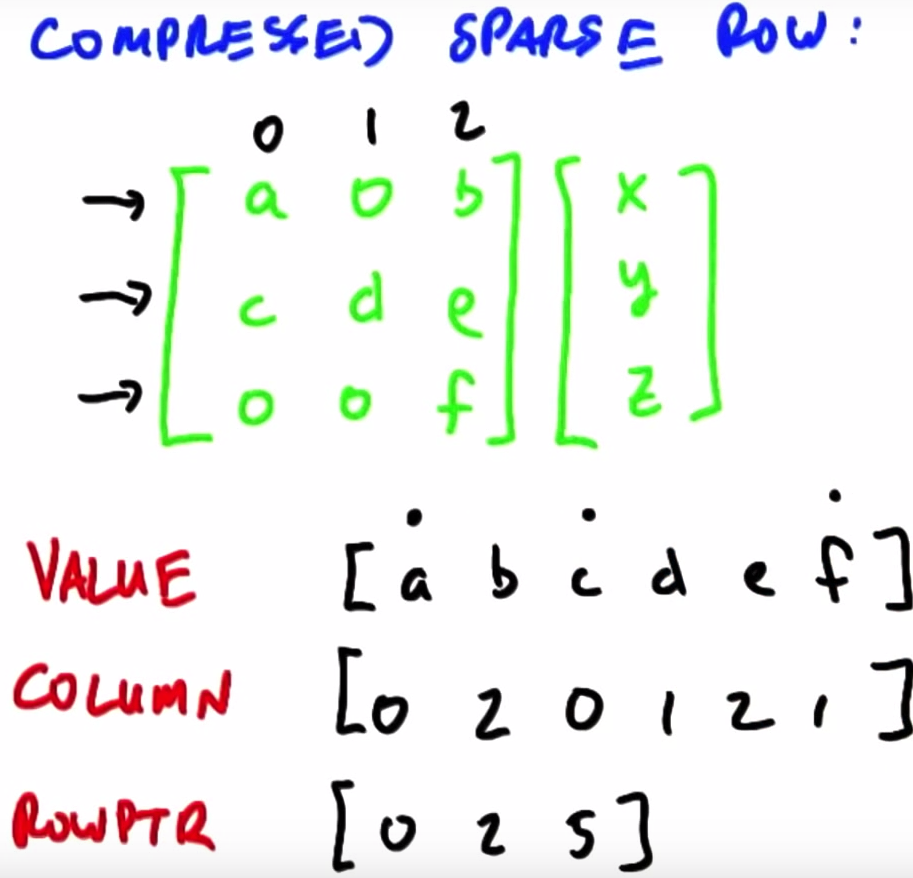 COMPRESSED SPARSE ROW:
0 1 2
→ [ a 0 b ] [ x ]
→ [ c d e ] [ y ]
→ [ 0 0 f ] [ z ]
VALUE [ a b c d e f ]
COLUMN [ 0 2 0 1 2 1 ]
ROWPTR [ 0 2 5 ]